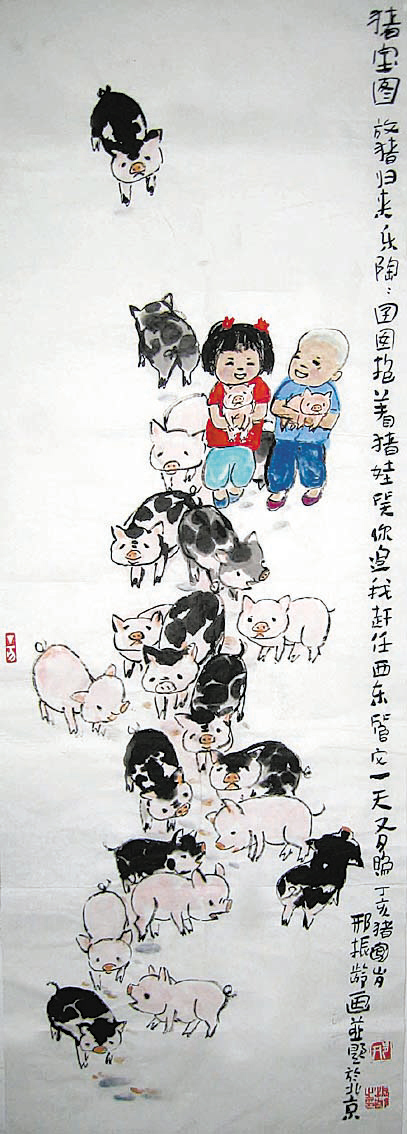 猪宝图 放猪归来乐陶〻囝囡抱着猪娃笑你追我赶任西东管它一天又夕照 丁亥猪岁
邢振龄画並题於北京